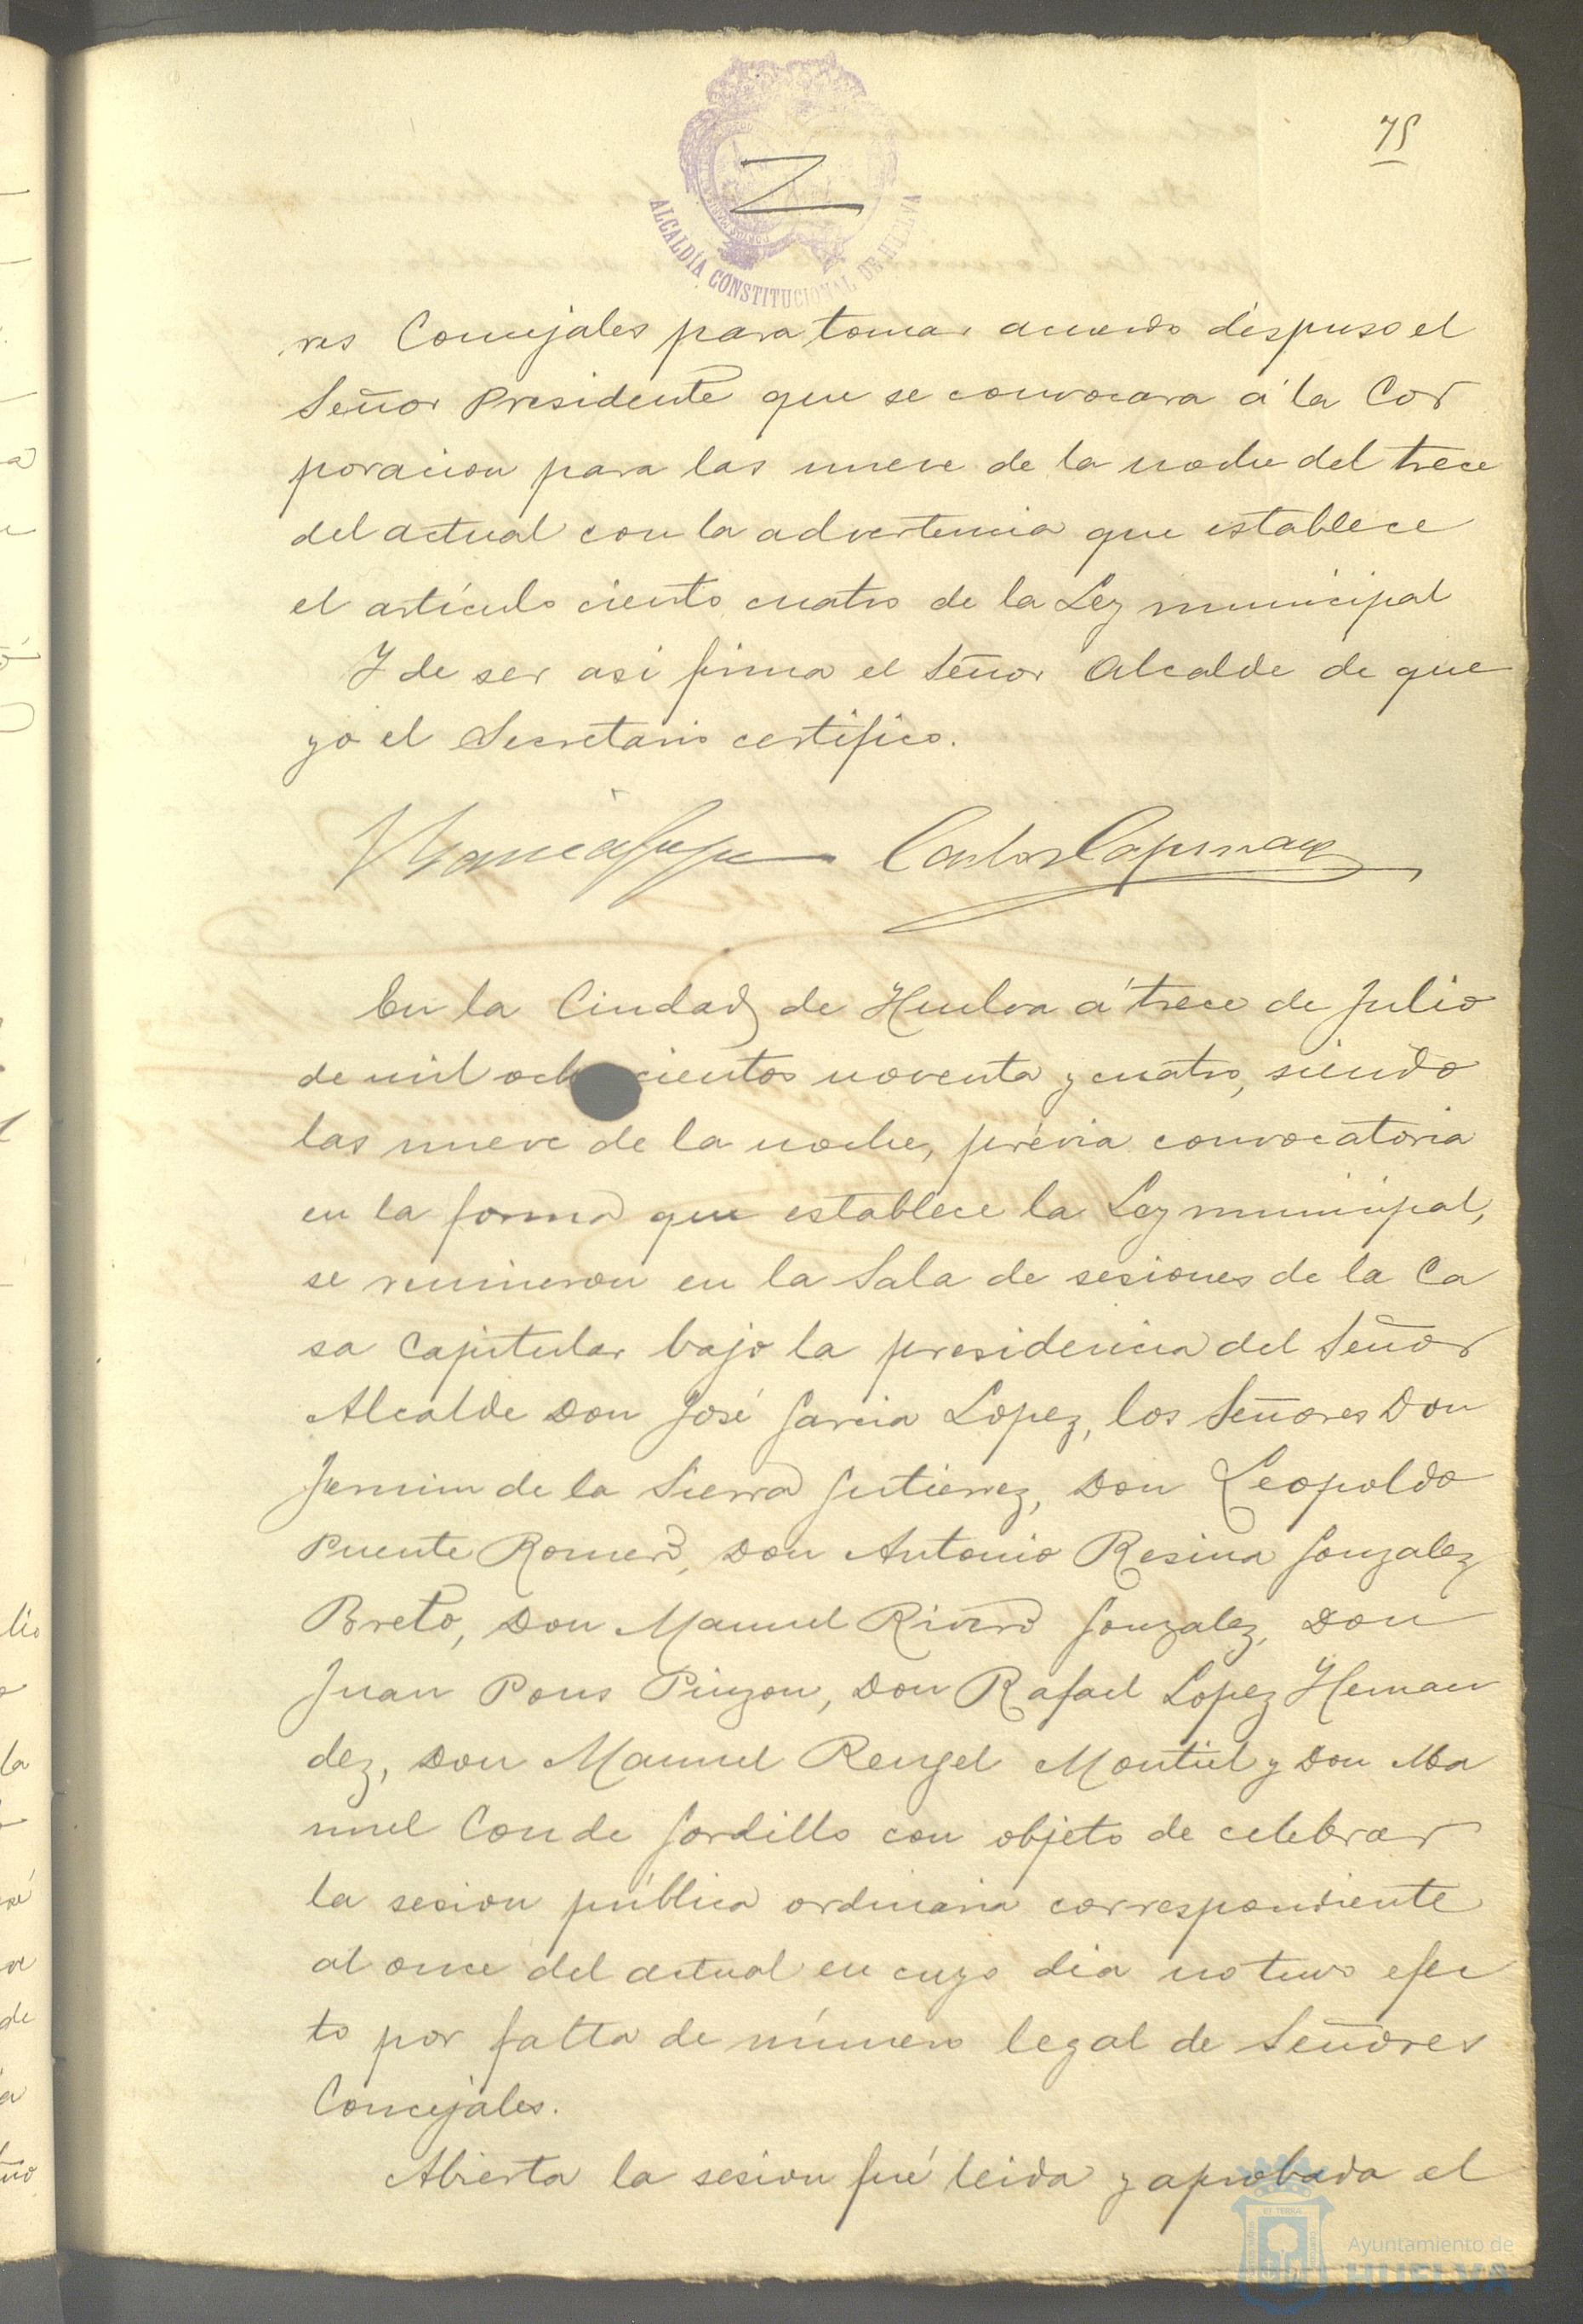 75
ALCALDÍA CONSTITUCIONAL DE HUELVA
res Concejales para tomar acuerdo dispuso el
Señor Presidente que se convocara á la Cor
poracion para las nueve de la noche del trece
del actual con la advertencia que establece
el artículo ciento cuatro de la Ley municipal
Y de ser asi firma el Señor Alcalde de que
yo el Secretario certifico.
En la Ciudad de Huelva á trece de Julio
de mil ochocientos noventa y cuatro, siendo
las nueve de la noche, prévia convocatoria
en la forma que establece la Ley municipal,
se reunieron en la Sala de sesiones de la Ca
sa Capitular bajo la presidencia del Señor
Alcalde Don José Garcia Lopez, los Señores Don
Fermin de la Sierra Gutierrez, Don Leopoldo
Puente Romero, Don Antonio Resina Gonzalez
Breto, Don Manuel Rivero Gonzalez, Don
Juan Pons Pinzon, Don Rafael Lopez Hernan
dez, Don Manuel Rengel Montiel y Don Ma
nuel Conde Gordillo con objeto de celebrar
la sesion pública ordinaria correspondiente
al once del actual en cuyo dia no tuvo efec
to por falta de número legal de Señores
Concejales.
Abierta la sesion fué leida y aprobada el
Ayuntamiento de
HUELVA